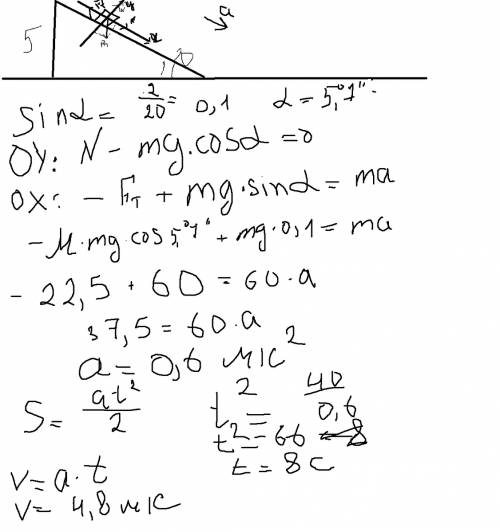 a
5
sinα = 2/20 = 0,1   α = 5,°7"
OY: N - mg·cosα = 0
OX: - Fт + mg·sinα = ma
- M·mg·cos 5,°7" + mg·0,1 = ma
- 22,5 + 60 = 60·a
37,5 = 60·a
a = 0,6 м/с²
S = at²/2   t² = 40/0,6
t² = 66
t = 8 с
v = a·t
v = 4,8 м/с